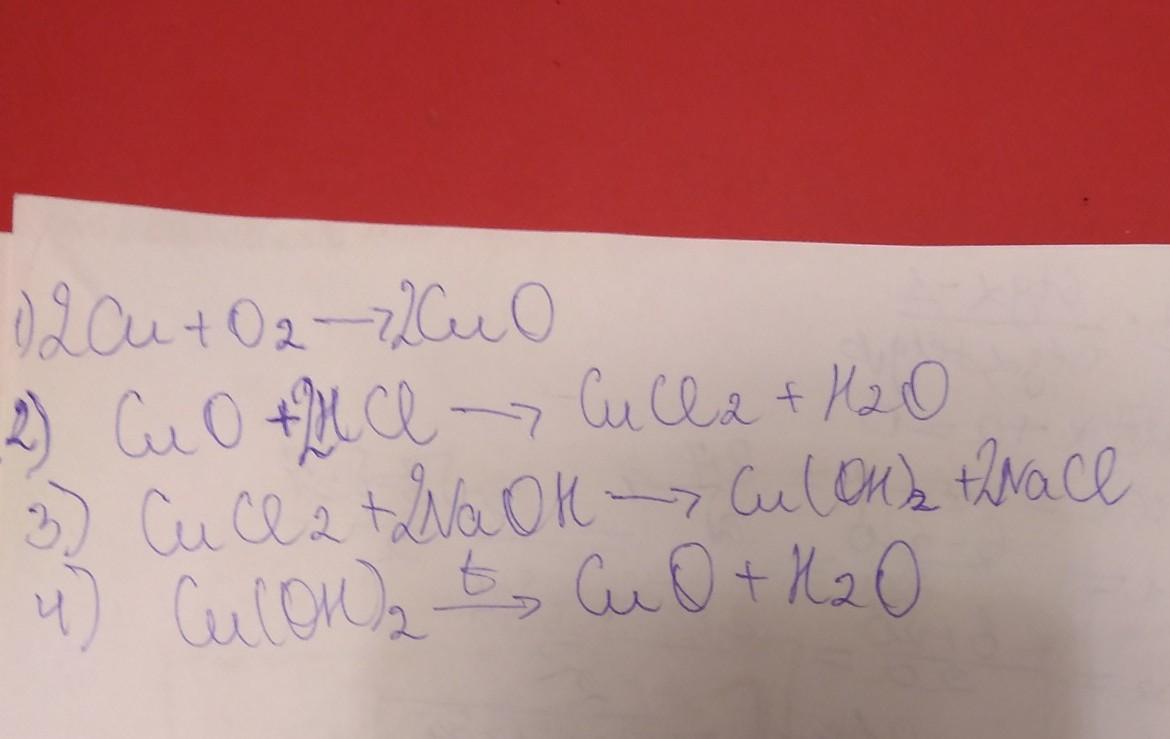 1) 2Cu + O2 → 2CuO
2) CuO + 2HCl → CuCl2 + H2O
3) CuCl2 + 2NaOH → Cu(OH)2 + 2NaCl
4) Cu(OH)2 t→ CuO + H2O